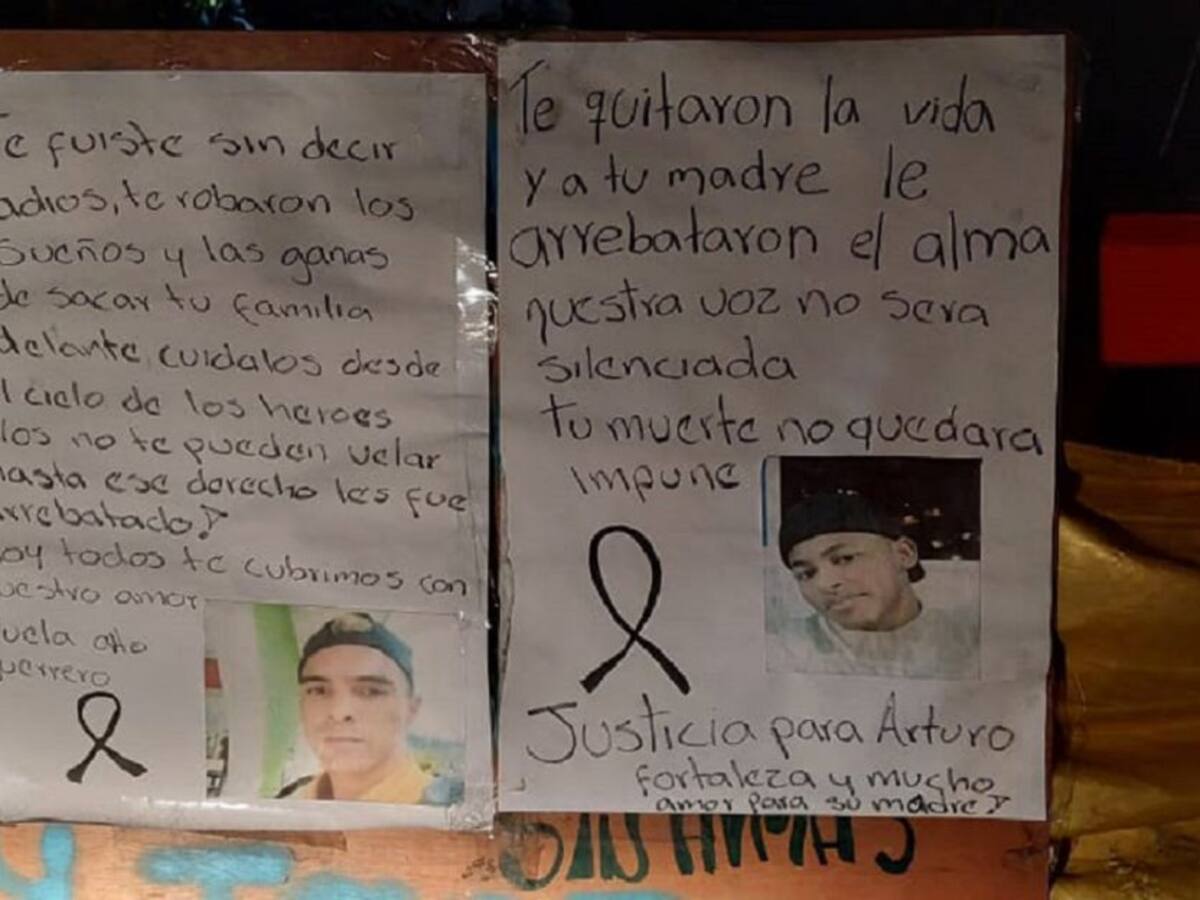 e fuiste sin decir
adios, te robaron los
sueños y las ganas
de sacar tu familia
delante, cuidalos desde
l cielo de los heroes
los no te pueden velar
hasta ese derecho les fue
rrebatado!
oy todos te cubrimos con
uestro amor
uela alto
uerrero
Te quitaron la vida
y a tu madre le
arrebataron el alma
nuestra voz no sera
silenciada
tu muerte no quedara
impune
Justicia para Arturo
fortaleza y mucho
amor para su madre